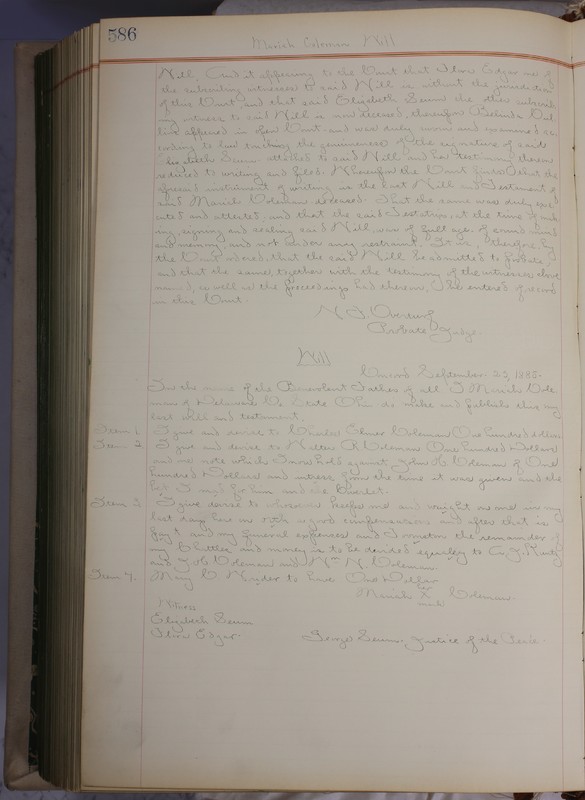 586
Mariah Coleman Will
Will, And it appearing to the Court that Edgar one of
the subscribing witnesses to said Will is without the jurisdiction
of this Court and that said Elizabeth the other subscrib
ing witness to said Will is now deceased, therefore
appeared in open Court and was duly sworn and examined ac-
cording to law touching the genuineness of the signature of said
Elizabeth attached to said Will and her testimony therein
reduced to writing and filed. Wherefore the Court finds that the
aforesaid instrument of writing is the last Will and Testament of
said Mariah Coleman deceased. That the same was duly exe
cuted and attested, and that the said Testatrix, at the time of mak
ing, signing and sealing said Will, was of full age, of sound mind
and memory and not under any restraint. It is, therefore by
the Court ordered, that the said Will be admitted to probate
and that the same, together with the testimony of the witnesses above
named, as well as the proceedings had thereon, be entered of record
in this Court.
Probate Judge.
Will
September 23, 1885.
In the name of the Benevolent Father of all I Mariah Cole
man of Delaware Co State Ohio do make and publish this my
last will and testament.
Item 1 I give and devise to Charles Elmer Coleman One hundred dollars
Item 2. I give and devise to R Coleman One hundred Dollars
and one note which I now hold against John Coleman of One
hundred Dollars and intress from the time it was given and the
for him and
Item 3 I give devise to whoever keeps me and me in my
last days here on with a good compensation and after that is
payd and my funeral expenses and the remainder of
my and money is to be devided equaley to
and Coleman and Wm N Coleman
Item 4. Mary C to have One Dollar
Mariah X Coleman
mark
Witness
Elizabeth
Edgar.
George Justice of the Peace.